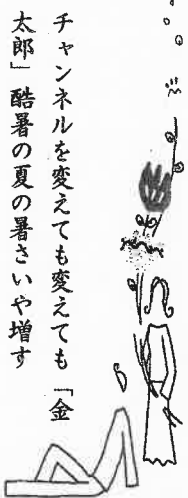 チャンネルを変えても変えても「金
太郎」酷暑の夏の暑さいや増す